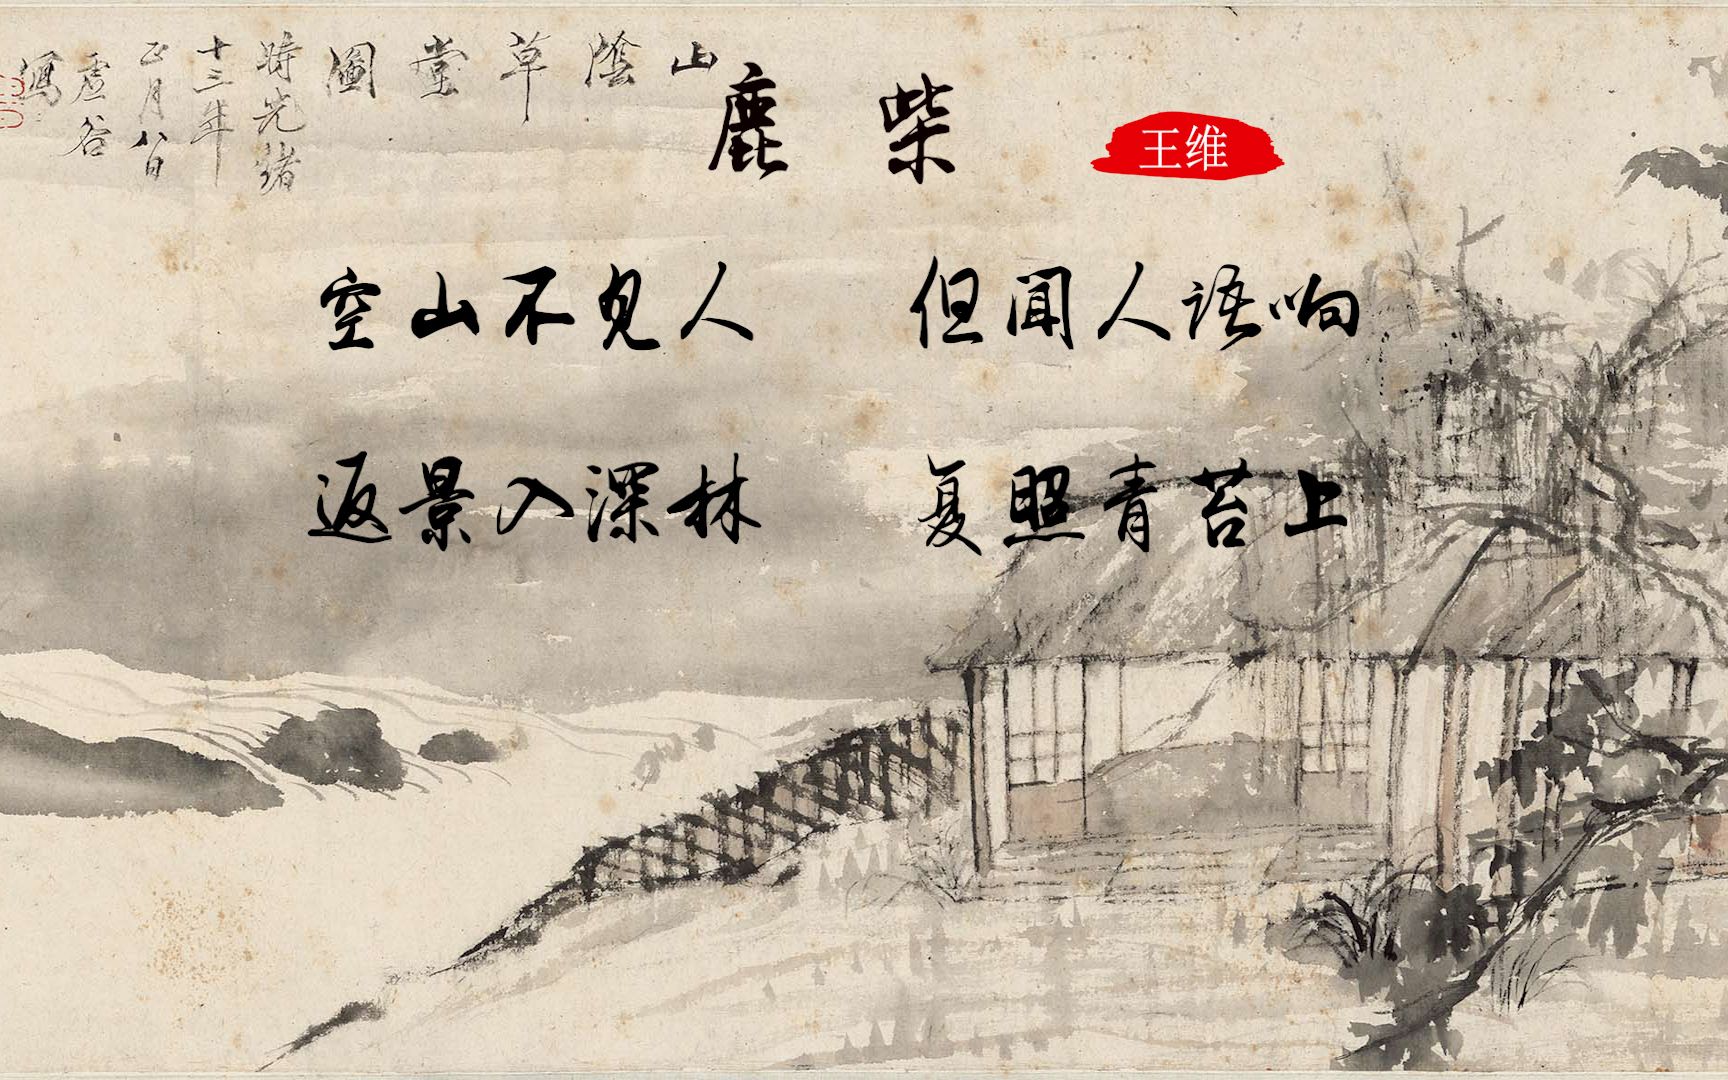 山陰草堂圖
時光緒
十三年
正月八日
虛谷
寫
鹿柴
王维
空山不见人 但闻人语响
返景入深林 复照青苔上